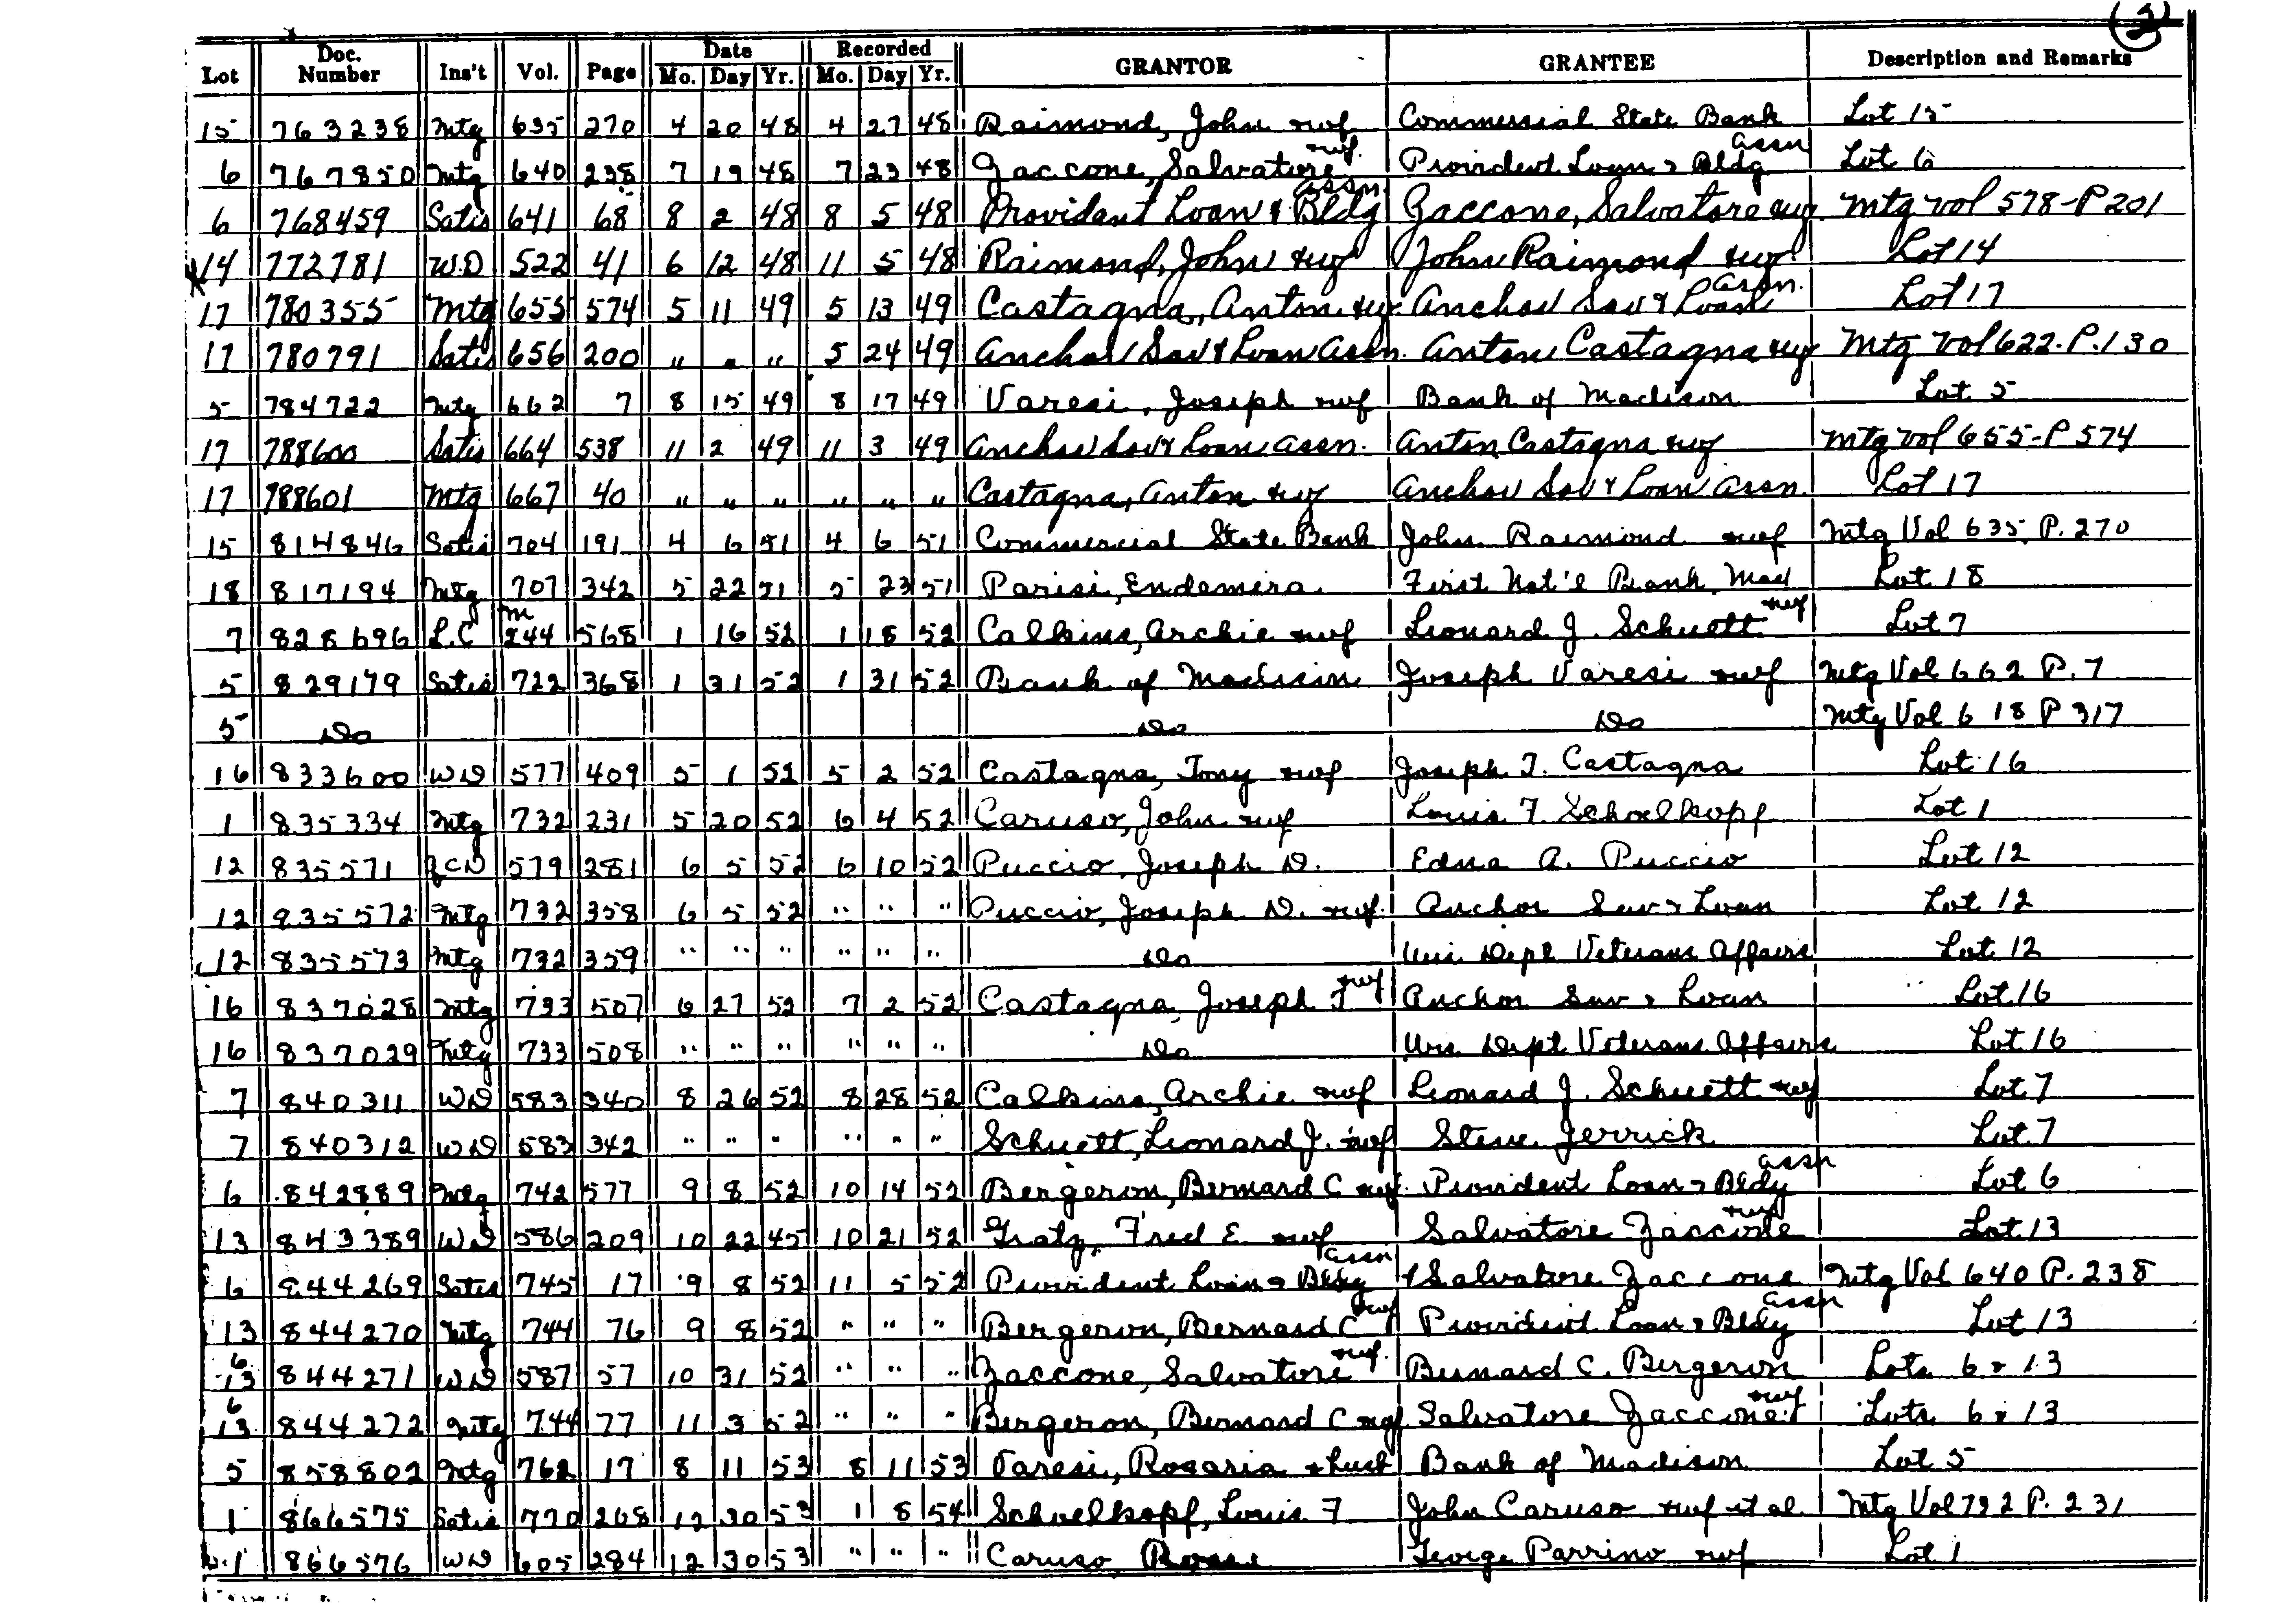 (3)
Lot Doc. Number Ins't Vol. Page Date Mo. Day Yr. Recorded Mo. Day Yr. GRANTOR GRANTEE Description and Remarks
15 763238 Mtg 635 270 4 20 48 4 27 48 Raimond, John &wf Commercial State Bank Lot 15
6 767850 Mtg 640 238 7 19 48 7 23 48 Zaccone, Salvatore &wf. Provident Loan & Bldg Assn Lot 6
6 768459 Satis 641 68 8 2 48 8 5 48 Provident Loan & Bldg Assn. Zaccone, Salvatore &wf. Mtg Vol 578-P201
14 772781 W.D 522 41 6 12 48 11 5 48 Raimond, John &wf John Raimond &wf Lot 14
17 780355 Mtg 655 574 5 11 49 5 13 49 Castagna, Anton &wf. Anchor Sav & Loan Assn. Lot 17
17 780791 Satis 656 200 " " " 5 24 49 Anchor Sav & Loan Assn. Anton Castagna &wf Mtg Vol 622-P.130
5 784722 Mtg 662 7 8 15 49 8 17 49 Varesi, Joseph &wf Bank of Madison Lot 5
17 788600 Satis 664 538 11 2 49 11 3 49 Anchor Sav & Loan Assn. Anton Castagna &wf Mtg Vol 655-P574
17 788601 Mtg 667 40 " " " " " " Castagna, Anton &wf Anchor Sav & Loan Assn. Lot 17
15 814846 Satis 704 191 4 6 51 4 6 51 Commercial State Bank John Raimond &wf Mtg Vol 635 P. 270
18 817194 Mtg 707 342 5 22 51 5 23 51 Parisi, Endemira First Nat'l Bank, Mad Lot 18
7 828696 L.C m 244 568 1 16 52 1 18 52 Calkins, Archie &wf Leonard J. Schuett &wf Lot 7
5 829179 Satis 722 368 1 31 52 1 31 52 Bank of Madison Joseph Varesi &wf Mtg Vol 662 P. 7
5 Do Do Do Mtg Vol 618 P 317
16 833600 WD 577 409 5 1 52 5 2 52 Castagna, Tony &wf Joseph T. Castagna Lot 16
1 835334 Mtg 732 231 5 20 52 6 4 52 Caruso, John &wf Louis F. Schoelkopf Lot 1
12 835571 QCD 579 281 6 5 52 6 10 52 Puccio, Joseph D. Edna A. Puccio Lot 12
12 835572 Mtg 732 358 6 5 52 " " " Puccio, Joseph D. &wf. Anchor Sav & Loan Lot 12
12 835573 Mtg 732 359 " " " " " " Do Wis Dept Veterans Affairs Lot 12
16 837028 Mtg 733 507 6 27 52 7 2 52 Castagna, Joseph T &wf Anchor Sav & Loan Lot 16
16 837029 Mtg 733 508 " " " " " " Do Wis Dept Veterans Affairs Lot 16
7 840311 WD 583 340 8 26 52 8 28 52 Calkins, Archie &wf Leonard J. Schuett &wf Lot 7
7 840312 WD 583 342 " " " " " " Schuett, Leonard J. &wf Steve Jerrick Lot 7
6 842889 Mtg 742 577 9 8 52 10 14 52 Bergeron, Bernard C &wf. Provident Loan & Bldg Assn Lot 6
13 843389 WD 586 209 10 22 45 10 21 52 Gratz, Fred E. &wf Salvatore Zaccone &wf Lot 13
6 844269 Satis 745 17 9 8 52 11 5 52 Provident Loan & Bldg Assn Salvatore Zaccone Mtg Vol 640 P. 238
13 844270 Mtg 744 76 9 8 52 " " " Bergeron, Bernard C &wf Provident Loan & Bldg Assn Lot 13
6 13 844271 WD 587 57 10 31 52 " " " Zaccone, Salvatore &wf. Bernard C. Bergeron Lots 6 & 13
6 13 844272 Mtg 744 77 11 3 52 " " " Bergeron, Bernard C &wf Salvatore Zaccone &wf Lots 6 & 13
5 858802 Mtg 762 17 8 11 53 8 11 53 Varesi, Rosaria & husb Bank of Madison Lot 5
1 866575 Satis 770 268 12 30 53 1 8 54 Schoelkopf, Louis F John Caruso &wf et al Mtg Vol 732 P. 231
1 866576 WD 605 284 12 30 53 " " " Caruso, Rose George Parrino &wf Lot 1